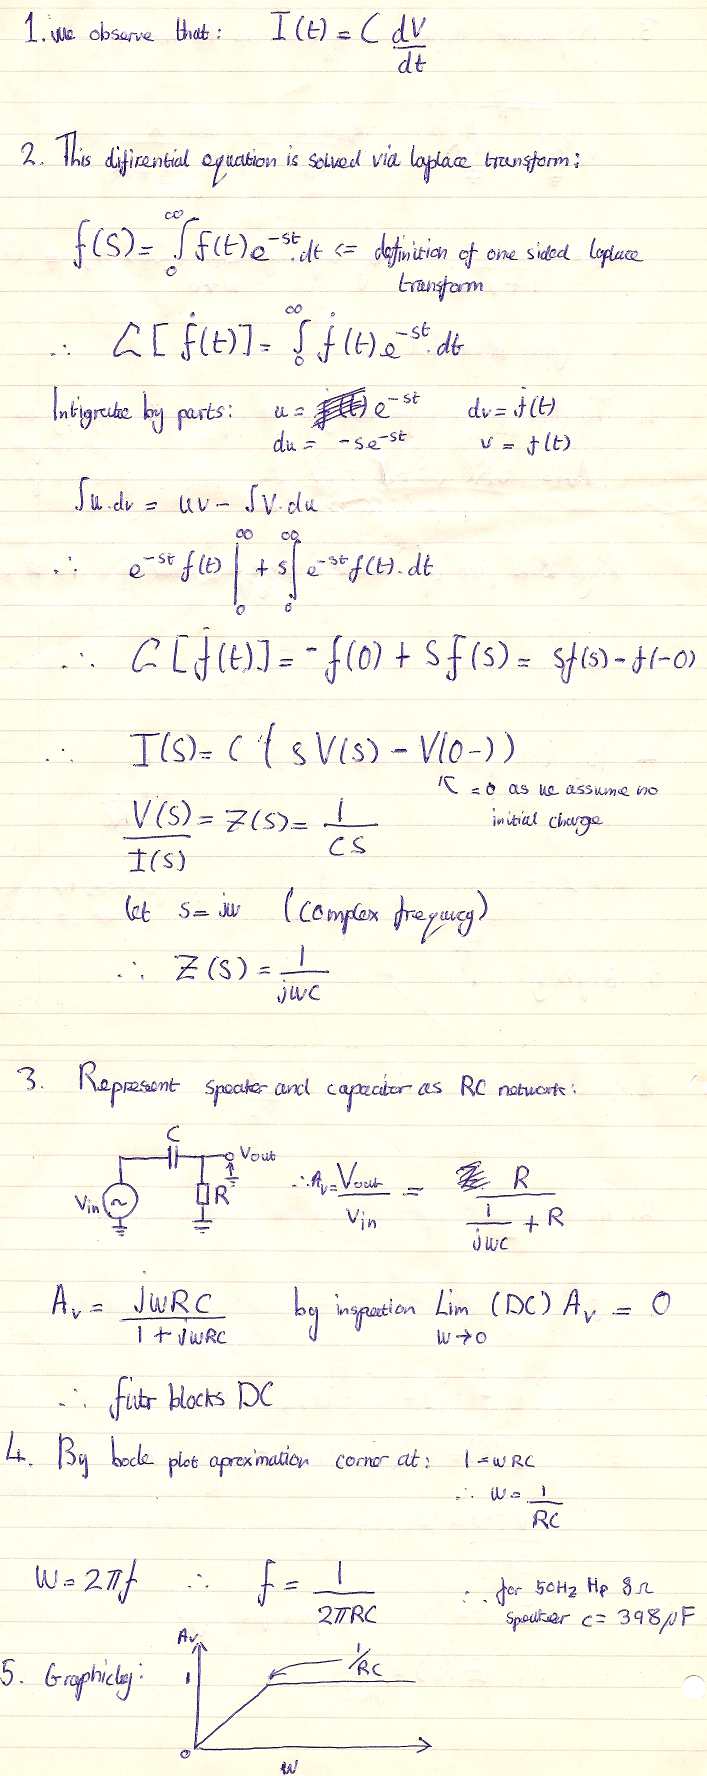 1. We observe that: I(t) = C dV/dt
2. This difirential equation is solved via laplace transform:
f(S) = ∫₀^∞ f(t)e^-st.dt <= definition of one sided laplace
transform
∴ L[ḟ(t)] = ∫₀^∞ ḟ(t)e^-st.dt
Intigrate by parts: u = e^-st dv = ḟ(t)
du = -se^-st v = f(t)
∫u.dv = uv - ∫v.du
∴ e^-st f(t) |₀^∞ + s∫₀^∞ e^-st f(t).dt
∴ L[ḟ(t)] = -f(0) + Sf(s) = sf(s) - f(-0)
∴ I(s) = C(sV(s) - V(0-))
= 0 as we assume no
initial charge
V(s)/I(s) = Z(s) = 1/CS
let s = jw (complex frequncy)
∴ Z(S) = 1/jwc
3. Represent speaker and capacitor as RC network:
C
Vout
Vin ~ R
∴ Av = Vout/Vin = R/(1/jwc + R)
Av = jwRC/(1 + jwRC) by inspection Lim w→0 (DC) Av = 0
∴ filter blocks DC
4. By bode plot aproximation corner at: 1 = wRC
∴ w = 1/RC
W = 2πf ∴ f = 1/2πRC ∴ for 50Hz Hp 8Ω
speaker c = 398μF
5. Graphicly:
Av
1
1/RC
0
w